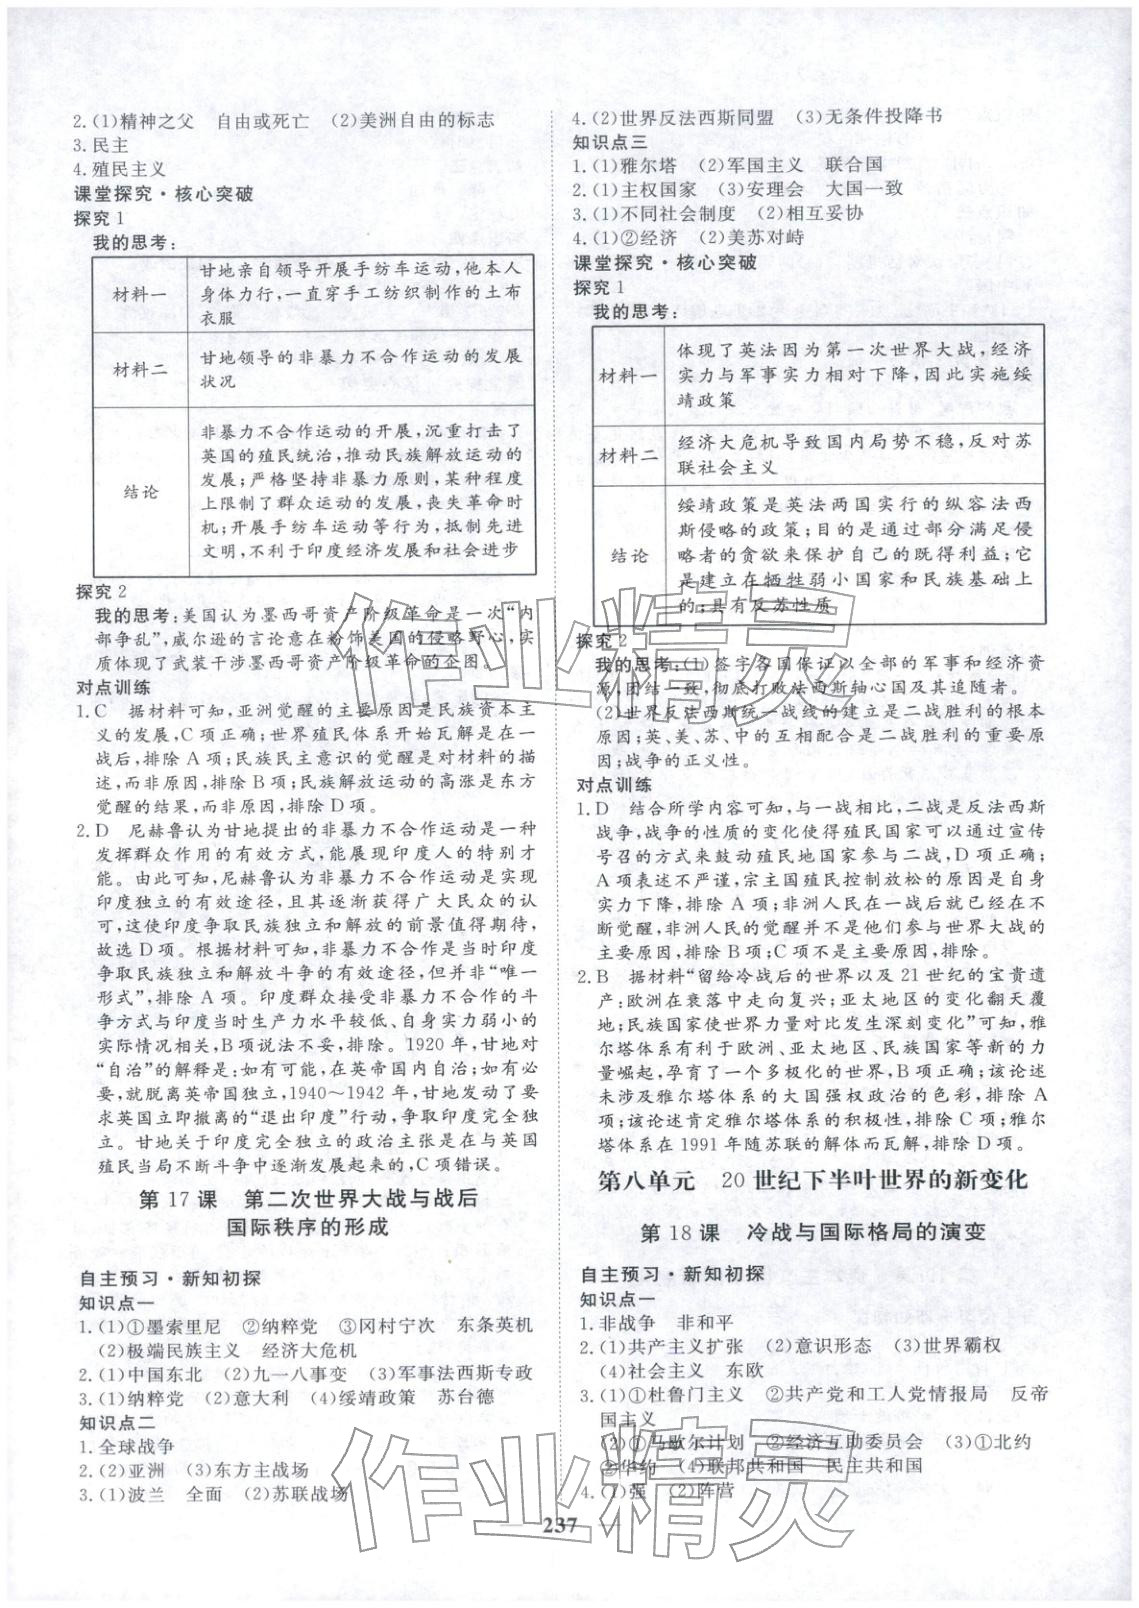 2.(1)精神之父　自由或死亡　(2)美洲自由的标志
3.民主
4.殖民主义
课堂探究·核心突破
探究1
我的思考:
材料一
甘地亲自领导开展手纺车运动,他本人
身体力行,一直穿手工纺织制作的土布
衣服
材料二
甘地领导的非暴力不合作运动的发展
状况
结论
非暴力不合作运动的开展,沉重打击了
英国的殖民统治,推动民族解放运动的
发展;严格坚持非暴力原则,某种程度
上限制了群众运动的发展,丧失革命时
机;开展手纺车运动等行为,抵制先进
文明,不利于印度经济发展和社会进步
探究2
我的思考:美国认为墨西哥资产阶级革命是一次“内
部争乱”,威尔逊的言论意在粉饰美国的侵略野心,实
质体现了武装干涉墨西哥资产阶级革命的企图。
对点训练
1.C　据材料可知,亚洲觉醒的主要原因是民族资本主
义的发展,C项正确;世界殖民体系开始瓦解是在一
战后,排除A项;民族民主意识的觉醒是对材料的描
述,而非原因,排除B项;民族解放运动的高涨是东方
觉醒的结果,而非原因,排除D项。
2.D　尼赫鲁认为甘地提出的非暴力不合作运动是一种
发挥群众作用的有效方式,能展现印度人的特别才
能。由此可知,尼赫鲁认为非暴力不合作运动是实现
印度独立的有效途径,且其逐渐获得广大民众的认
可,这使印度争取民族独立和解放的前景值得期待,
故选D项。根据材料可知,非暴力不合作是当时印度
争取民族独立和解放斗争的有效途径,但并非“唯一
形式”,排除A项。印度群众接受非暴力不合作的斗
争方式与印度当时生产力水平较低、自身实力弱小的
实际情况相关,B项说法不妥,排除。1920年,甘地对
“自治”的解释是:如有可能,在英帝国内自治;如有必
要,就脱离英帝国独立,1940～1942年,甘地发动了要
求英国立即撤离的“退出印度”行动,争取印度完全独
立。甘地关于印度完全独立的政治主张是在与英国
殖民当局不断斗争中逐渐发展起来的,C项错误。
第17课　第二次世界大战与战后
国际秩序的形成
自主预习·新知初探
知识点一
1.(1)①墨索里尼　②纳粹党　③冈村宁次　东条英机
(2)极端民族主义　经济大危机
2.(1)中国东北　(2)九一八事变　(3)军事法西斯专政
3.(1)纳粹党　(2)意大利　(4)绥靖政策　苏台德
知识点二
1.全球战争
2.(2)亚洲　(3)东方主战场
3.(1)波兰　全面　(2)苏联战场
4.(2)世界反法西斯同盟　(3)无条件投降书
知识点三
1.(1)雅尔塔　(2)军国主义　联合国
2.(1)主权国家　(3)安理会　大国一致
3.(1)不同社会制度　(2)相互妥协
4.(1)②经济　(2)美苏对峙
课堂探究·核心突破
探究1
我的思考:
材料一
体现了英法因为第一次世界大战,经济
实力与军事实力相对下降,因此实施绥
靖政策
材料二
经济大危机导致国内局势不稳,反对苏
联社会主义
结论
绥靖政策是英法两国实行的纵容法西
斯侵略的政策;目的是通过部分满足侵
略者的贪欲来保护自己的既得利益;它
是建立在牺牲弱小国家和民族基础上
的;具有反苏性质
探究2
我的思考:(1)签字各国保证以全部的军事和经济资
源,团结一致,彻底打败法西斯轴心国及其追随者。
(2)世界反法西斯统一战线的建立是二战胜利的根本
原因;英、美、苏、中的互相配合是二战胜利的重要原
因;战争的正义性。
对点训练
1.D　结合所学内容可知,与一战相比,二战是反法西斯
战争,战争的性质的变化使得殖民国家可以通过宣传
号召的方式来鼓动殖民地国家参与二战,D项正确;
A项表述不严谨,宗主国殖民控制放松的原因是自身
实力下降,排除A项;非洲人民在一战后就已经在不
断觉醒,非洲人民的觉醒并不是他们参与世界大战的
主要原因,排除B项;C项不是主要原因,排除。
2.B　据材料“留给冷战后的世界以及21世纪的宝贵遗
产:欧洲在衰落中走向复兴;亚太地区的变化翻天覆
地;民族国家使世界力量对比发生深刻变化”可知,雅
尔塔体系有利于欧洲、亚太地区、民族国家等新的力
量崛起,孕育了一个多极化的世界,B项正确;该论述
未涉及雅尔塔体系的大国强权政治的色彩,排除A
项;该论述肯定雅尔塔体系的积极性,排除C项;雅尔
塔体系在1991年随苏联的解体而瓦解,排除D项。
第八单元　20世纪下半叶世界的新变化
第18课　冷战与国际格局的演变
自主预习·新知初探
知识点一
1.非战争　非和平
2.(1)共产主义扩张　(2)意识形态　(3)世界霸权
(4)社会主义　东欧
3.(1)①杜鲁门主义　②共产党和工人党情报局　反帝
国主义
(2)①马歇尔计划　②经济互助委员会　(3)①北约
②华约　(4)联邦共和国　民主共和国
4.(1)强　(2)阵营
237
作业精灵
作业精灵